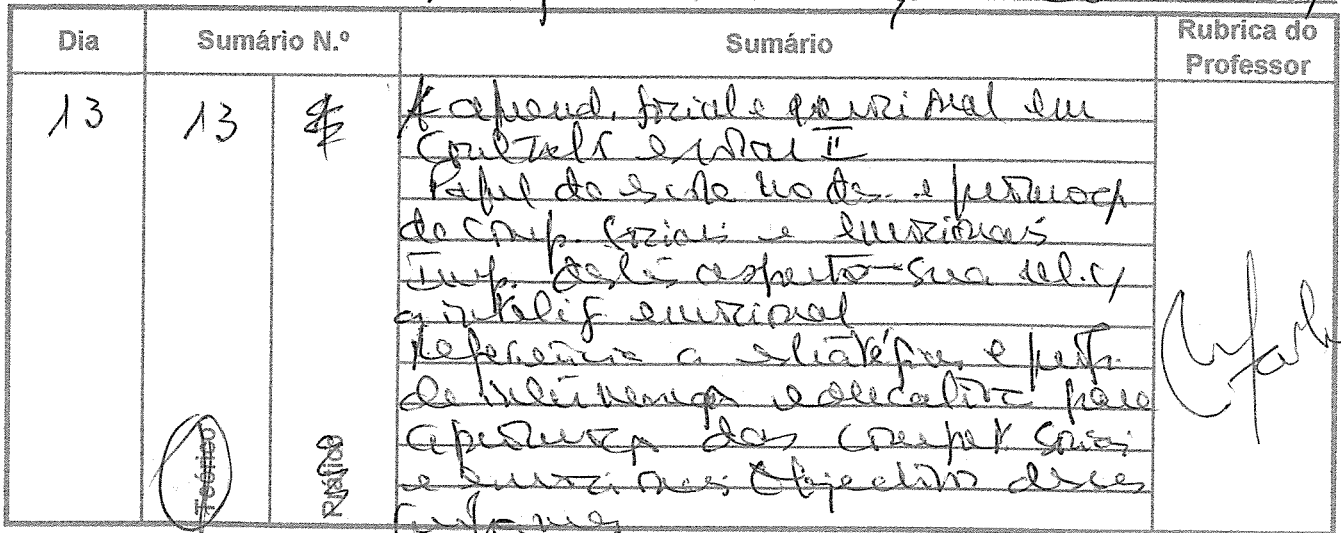 Dia Sumário N.º Sumário Rubrica do Professor
13 13 A aprend. social e emocional em
contexto escolar II
Papel da escola no des. e promoção
de comp. sociais e emocionais
Imp. deste aspecto - sua rel. c/
a intelig emocional
Referência a estratégias e
de intervenção educativa para
a promoção das compet sociais
e emocionais Objectivo desses
Teórico Prático